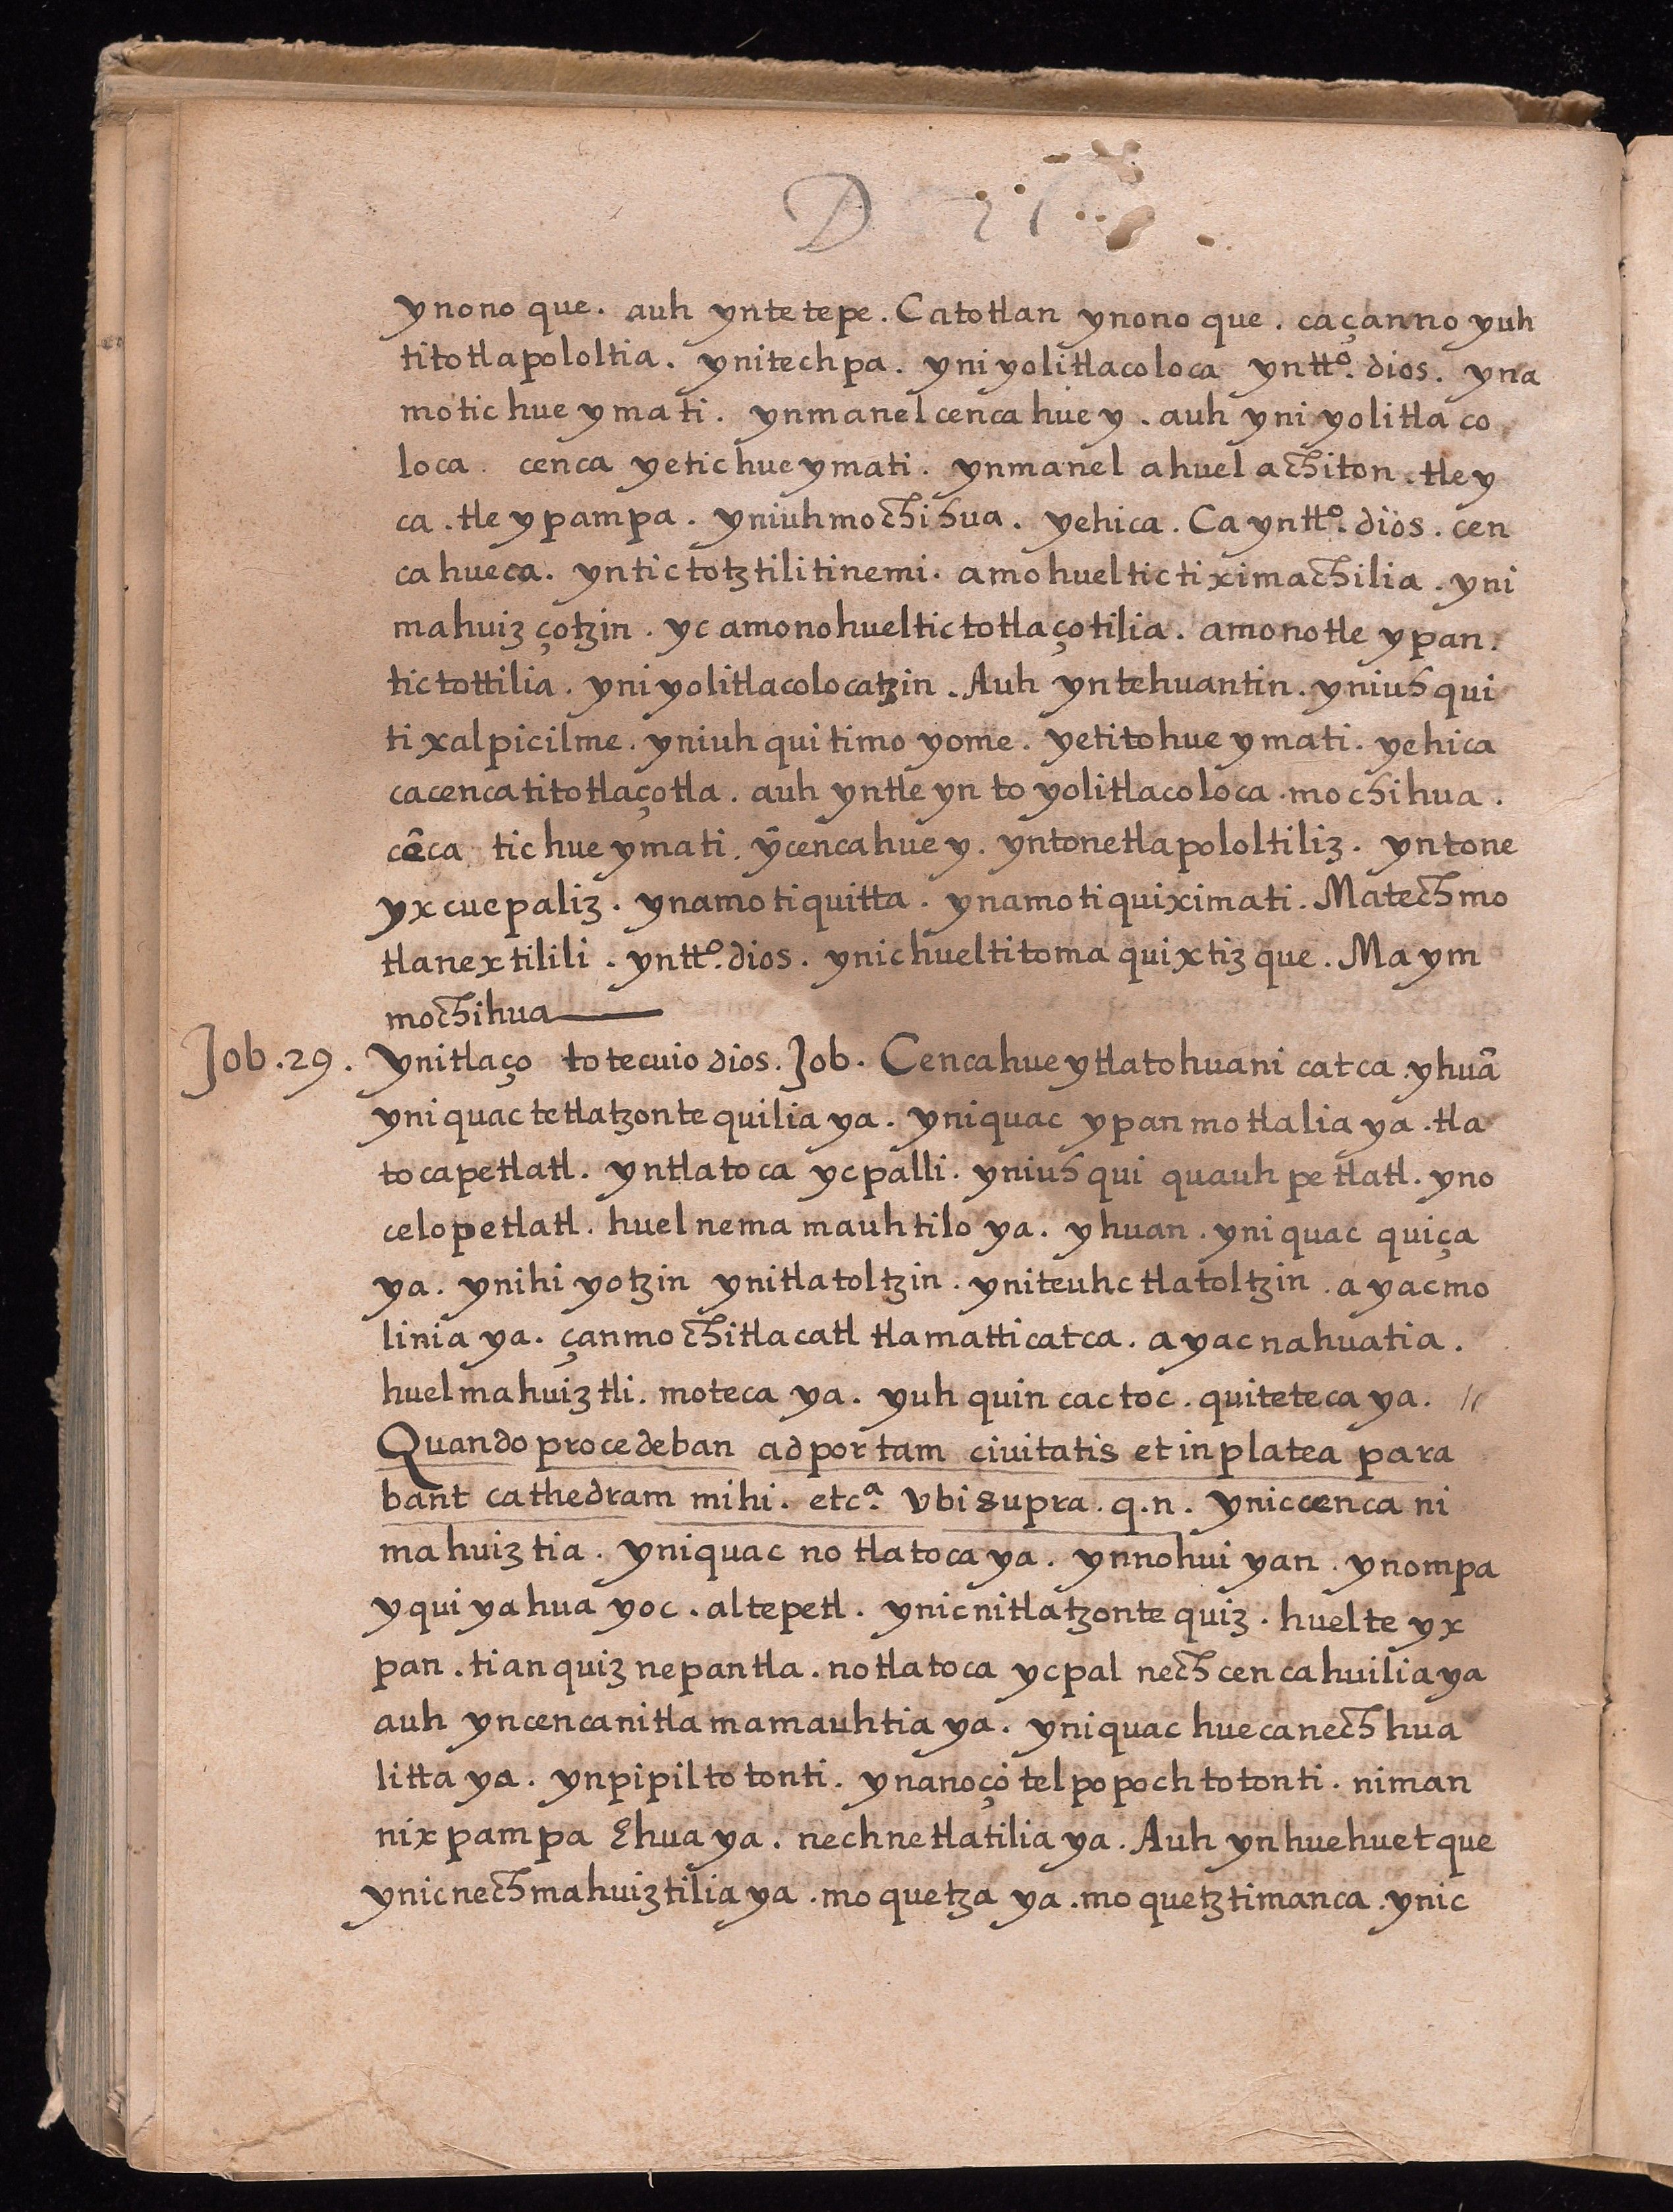 D
ynono que. auh yntetepe. Catotlan ynono que. caçanno yuh
titotlapololtia. ynitechpa. yniyolitlacoloca yntt.º dios. yna
motic hue ymati. ynmanel cenca hue y. auh yni yolitla co
loca. cenca yetic hue ymati. ynmanel ahuel achiton. tle y
ca. tle y pampa. yniuhmochihua. yehica. Ca yntt.º dios. cen
ca hueca. yntictotztilitinemi. amo hueltictiximachilia. yni
mahuizçotzin. yc amono hueltictotlaçotilia. amonotle ypan.
tictottilia. yniyolitlacolocatzin. Auh yntehuantin. yniuhqui
tixalpicilme. yniuh qui timo yome. yetitohue ymati. yehica
cacencatitotlaçotla. auh yntle yn to yolitlacoloca. mochihua.
cẽca tic hue ymati. ỹcencahue y. yntonetlapololtiliz. yntone
yxcuepaliz. ynamo tiquitta. ynamo tiquiximati. Matechmo
tlanextilili. yntt.º dios. ynic hueltitoma quixtiz que. Ma ym
mochihua
Job. 29. Ynitlaço totecuio dios. Job. Cencahue ytlatohuani catca. yhuã
yniquac tetlatzontequilia ya. yniquac ypan motlalia ya. tla
tocapetlatl. yntlatoca ycpalli. yniuhqui quauh petlatl. yno
celopetlatl. huel nema mauhtilo ya. yhuan. yniquac quiça
ya. ynihi yotzin ynitlatoltzin. yniteuhc tlatoltzin. a yacmo
linia ya. çanmochitlacatl tlamatticatca. a yac nahuatia.
huelmahuiztli. moteca ya. yuh quin cactoc. quiteteca ya. //
Quando procedeban ad portam ciuitatis et in platea para
bant cathedram mihi. etc.ª vbi supra. q.n. yniccenca ni
mahuiztia. yniquac no tlatoca ya. ynnohui yan. ynompa
yqui yahua yoc. altepetl. ynicnitlatzontequiz. huelte yx
pan. tianquiz nepantla. notlatoca ycpal nechcencahuilia ya
auh yncencanitlamamauhtia ya. yniquac huecanechhua
litta ya. ynpipiltotonti. ynanoço telpopochtotonti. niman
nixpampa Ehua ya. nechnetlatilia ya. Auh ynhuehuetque
ynicnechmahuiztilia ya. moquetza ya. moquetztimanca. ynic